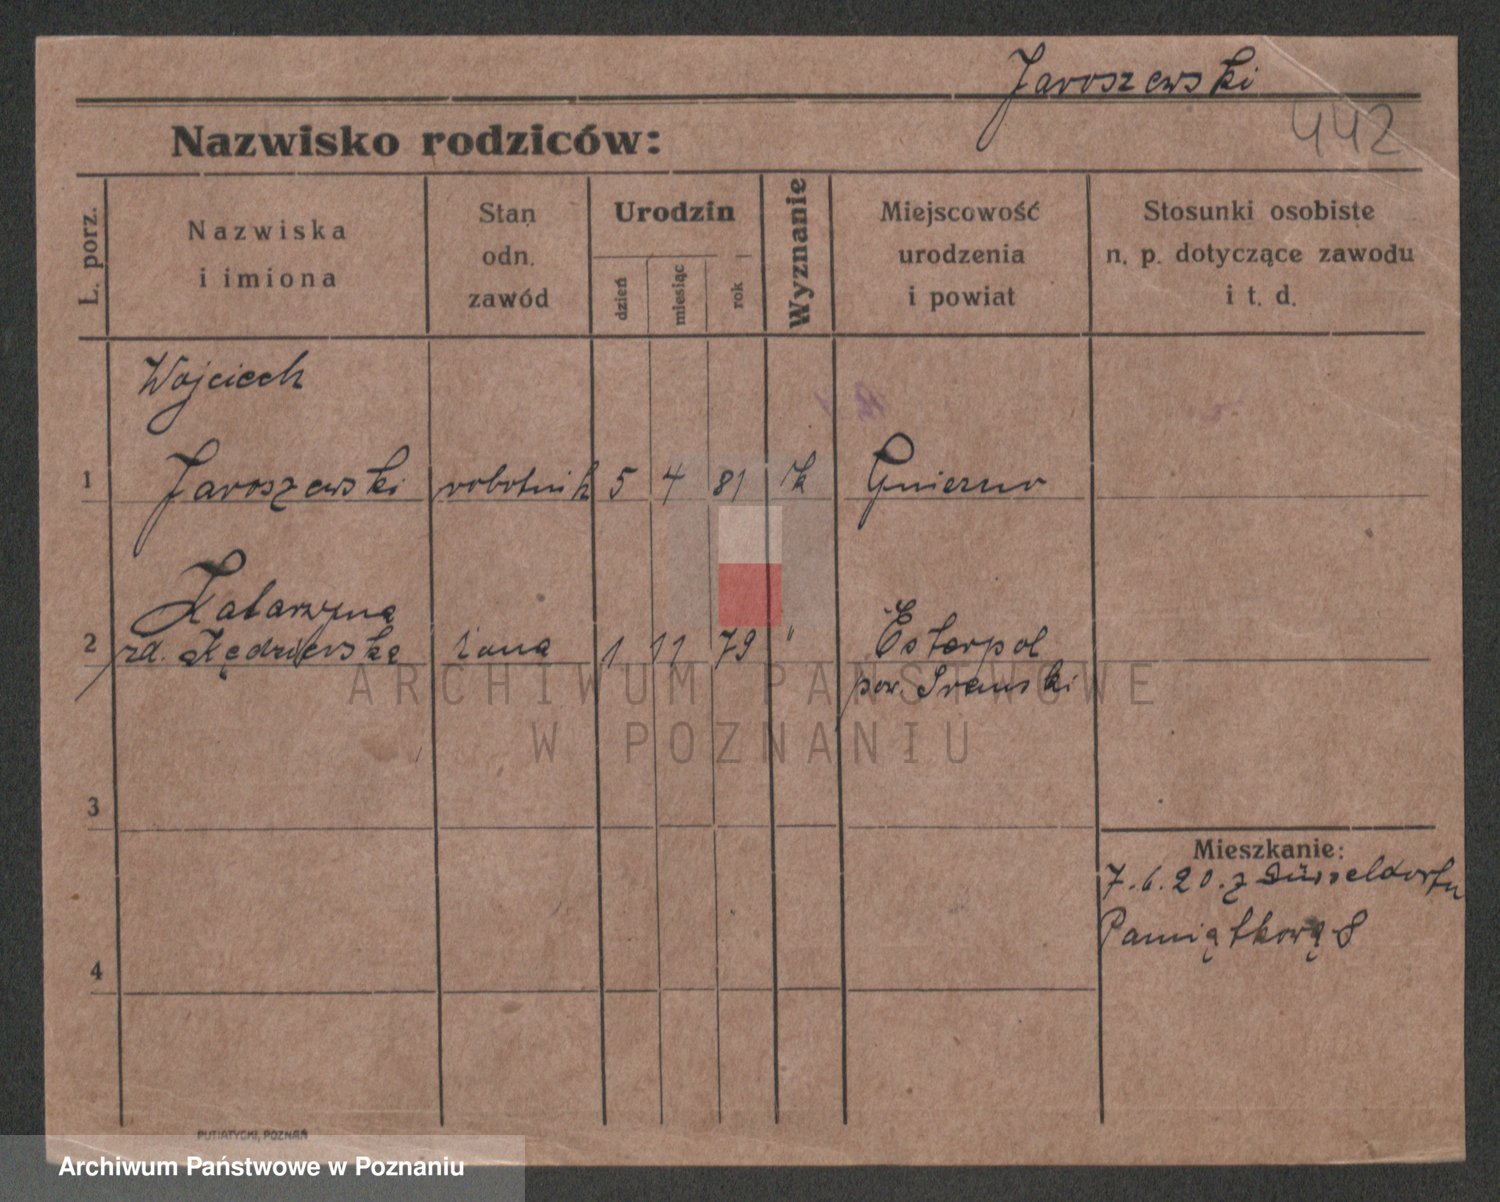 Jaroszewski
442
Nazwisko rodziców:
L. porz.
Nazwiska
i imiona
Stan
odn.
zawód
Urodzin
dzień
miesiąc
rok
Wyznanie
Miejscowość
urodzenia
i powiat
Stosunki osobiste
n. p. dotyczące zawodu
i t. d.
Wojciech
1 Jaroszewski robotnik 5 4 81 k Gniezno
Katarzyna
2 zd. Kędzierska żona 1 11 79 " Esterpol
pow. Sremski
ARCHIWUM PAŃSTWOWE
W POZNANIU
3
Mieszkanie:
7.6.20. z Düsseldorfu
Pamiątkowa 8
4
PUTIATYCKI, POZNAŃ
Archiwum Państwowe w Poznaniu